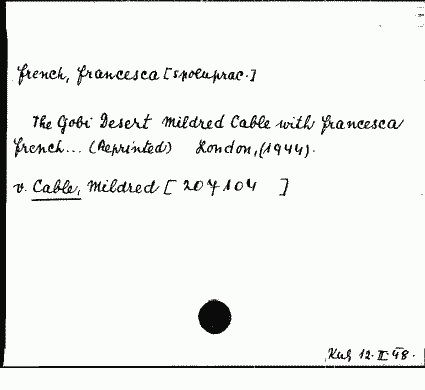 French, Francesca [spoluprac.]
The Gobi Desert Mildred Cable with Francesca
French... (Reprinted) London, (1944).
v. Cable, Mildred [ 204104 ]
12.II.48.